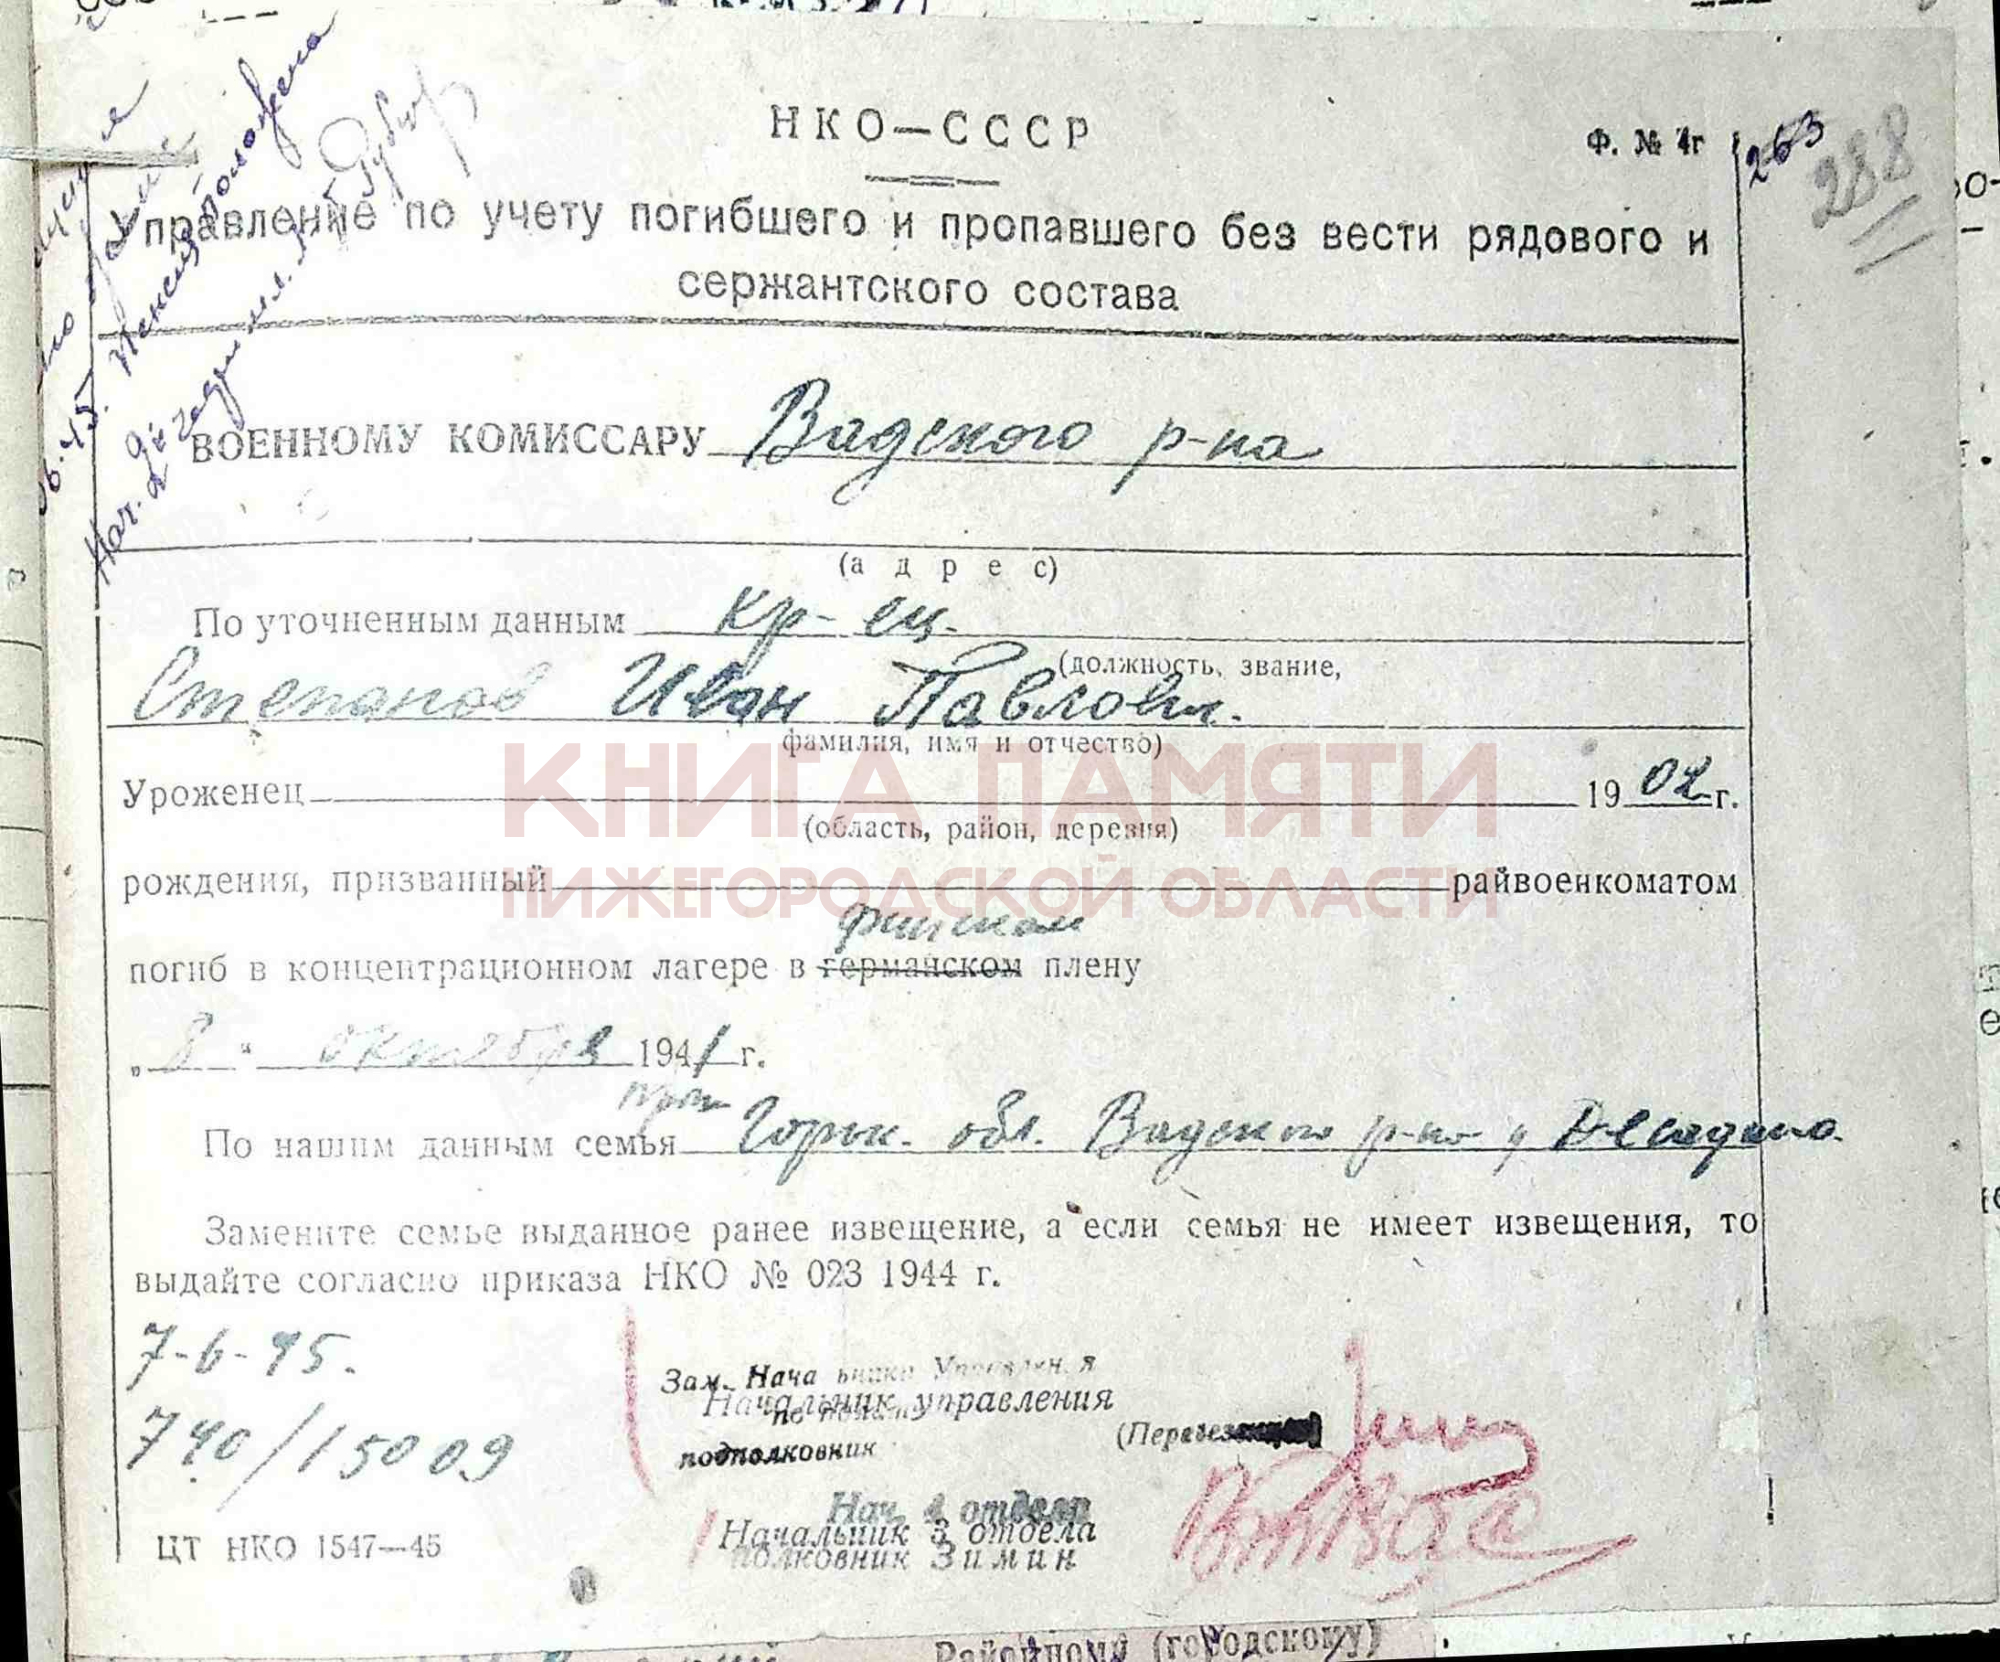 НКО—СССР
Ф. № 4г
263
288
Управление по учету погибшего и пропавшего без вести рядового и
сержантского состава
ВОЕННОМУ КОМИССАРУ Вадского р-на
(адрес)
По уточненным данным кр-ец.
(должность, звание,
Степанов Иван Павлович.
фамилия, имя и отчество)
КНИГА ПАМЯТИ
Уроженец 1902 г.
(область, район, деревня)
рождения, призванный райвоенкоматом
НИЖЕГОРОДСКОЙ ОБЛАСТИ
финском
погиб в концентрационном лагере в германском плену
„8" октября 1941 г.
По нашим данным семья Горьк. обл. Вадского р-на
Замените семье выданное ранее извещение, а если семья не имеет извещения, то
выдайте согласно приказа НКО № 023 1944 г.
7-6-45.
740/15009
Зам. Начальника Управления
Начальник управления
подполковник
Нач. 4 отдела
Начальник 3 отдела
полковник Зимин
ЦТ НКО 1547—45
Районному (городскому)